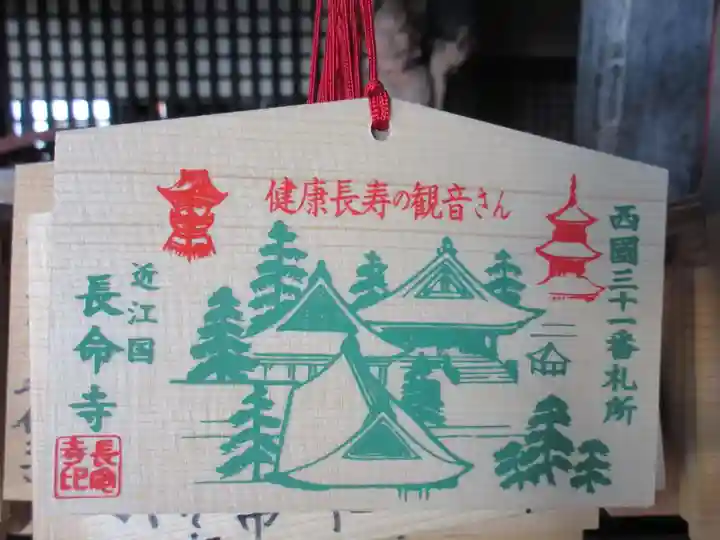 健康長寿の観音さん
西國三十一番札所
近江国
長命寺
長命寺印